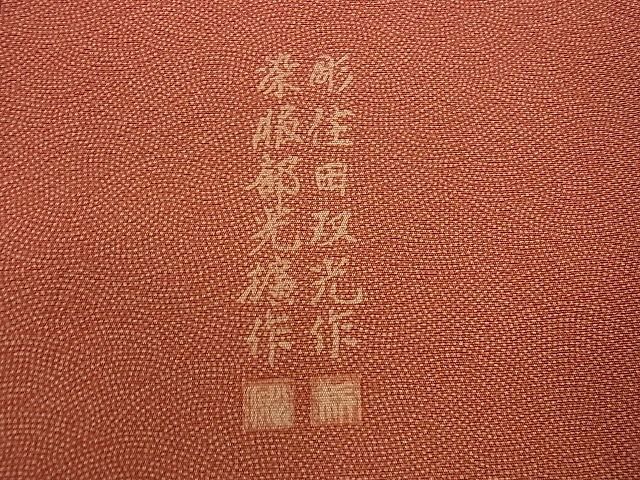 彫住田政光作
染服部光雄作